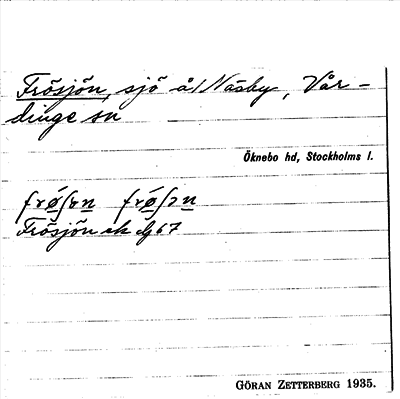 Frösjön, sjö å/Näsby, Vår-
dinge sn
Öknebo hd, Stockholms l.
Frösjön ek
GÖRAN ZETTERBERG 1935.